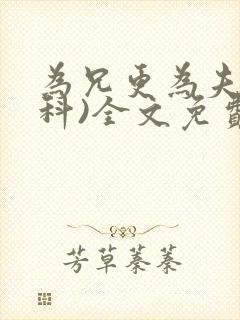 為兄更為夫
科)全文免費
芳草蓁蓁